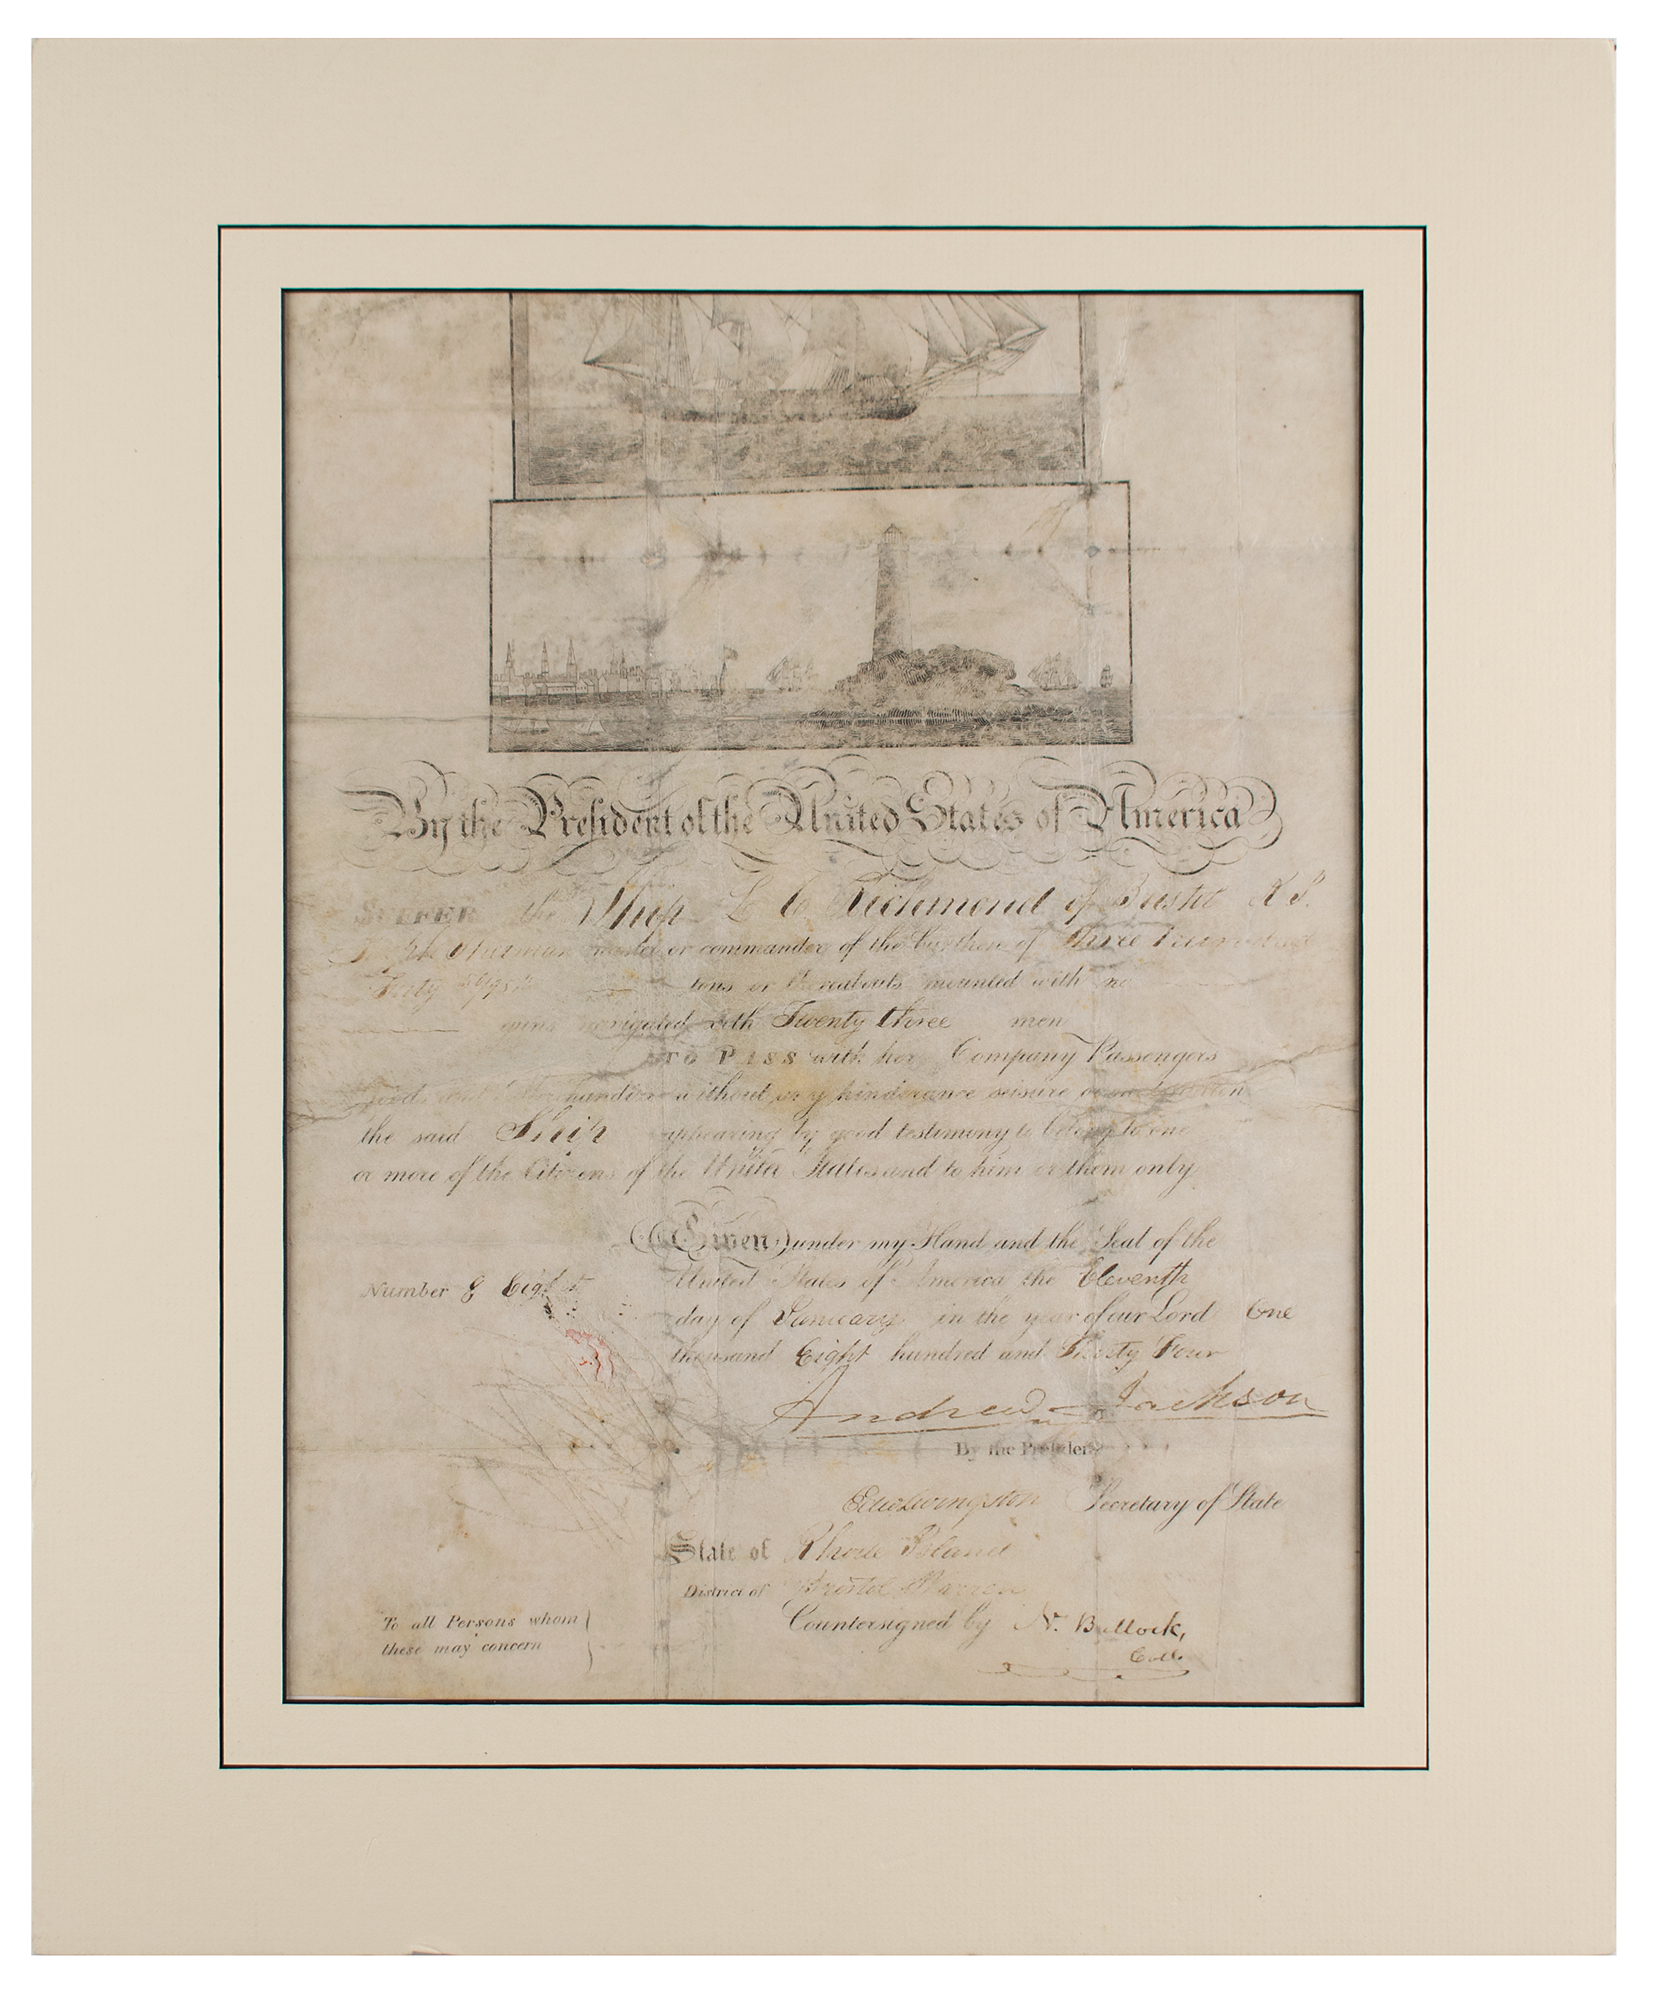 By the President of the United States of America
SUFFER the Ship L C Richmond of Bristol R I.
master or commander of the burthen of Three Hundred and
Forty tons or thereabouts mounted with no
guns navigated with Twenty three men
TO PASS with her Company Passengers
Goods and Merchandize without any hinderance seisure or molestation
the said Ship appearing by good testimony to belong to one
or more of the Citizens of the United States and to him or them only
Given under my Hand and the Seal of the
United States of America the Eleventh
Number 8 Eight
day of January in the year of our Lord One
thousand Eight hundred and Thirty Four
Andrew Jackson
By the President
Edw Livingston Secretary of State
State of Rhode Island
District of Bristol Warren
To all Persons whom
these may concern
Countersigned by N. Bullock,
Coll.